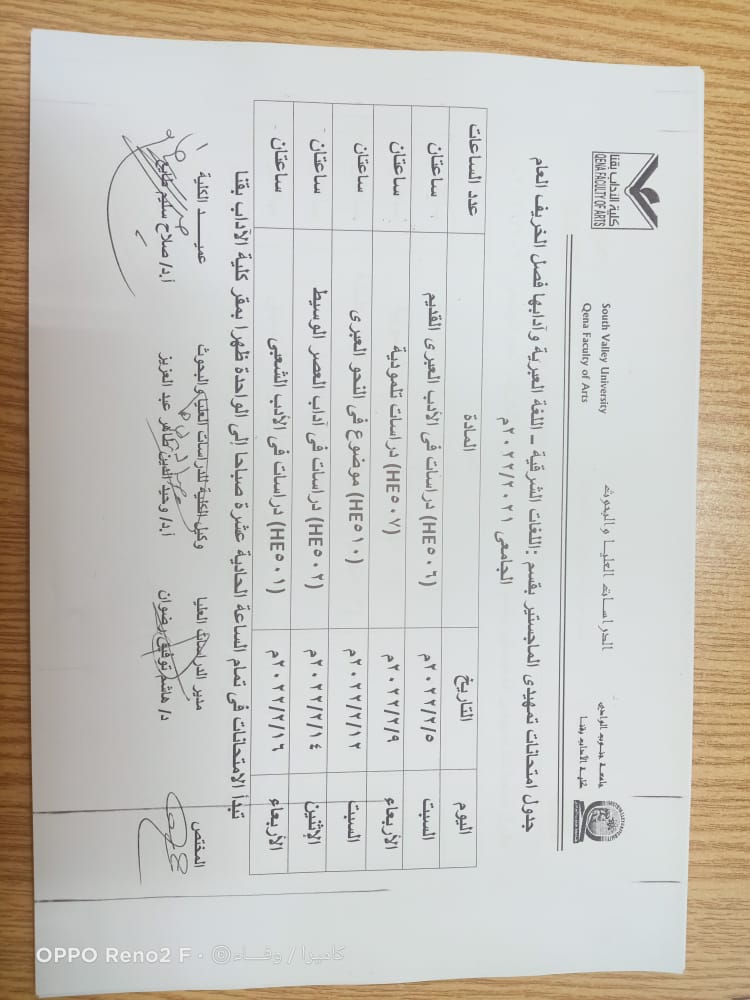 جامعة جنوب الوادي
كلية الآداب بقنا
الدراسات العليا والبحوث
South Valley University
Qena Faculty of Arts
كلية الآداب بقنا
QENA FACULTY OF ARTS
جدول امتحانات تمهيدى الماجستير بقسم :اللغات الشرقية – اللغة العبرية وآدابها فصل الخريف العام
الجامعى ٢٠٢٢/٢٠٢١م
اليوم التاريخ المادة عدد الساعات
السبت ٢٠٢٢/٢/٥م (HE٥٠٦) دراسات فى الأدب العبرى القديم ساعتان
الأربعاء ٢٠٢٢/٢/٩م (HE٥٠٧) دراسات تلمودية ساعتان
السبت ٢٠٢٢/٢/١٢م (HE٥١٠) موضوع فى النحو العبرى ساعتان
الإثنين ٢٠٢٢/٢/١٤م (HE٥٠٢) دراسات فى آداب العصر الوسيط ساعتان
الأربعاء ٢٠٢٢/٢/١٦م (HE٥٠١) دراسات فى الأدب الشعبى ساعتان
تبدأ الامتحانات فى تمام الساعة الحادية عشرة صباحا إلى الواحدة ظهرا بمقر كلية الآداب بقنا
المختص مدير الدراسات العليا وكيل الكلية للدراسات العليا والبحوث عميد الكلية
د/ هاشم توفيق رضوان أ.د/ وحيد الدين طاهر عبد العزيز أ.د/ صلاح سليم طايع
OPPO Reno2 F · ©كاميرا / وفاء